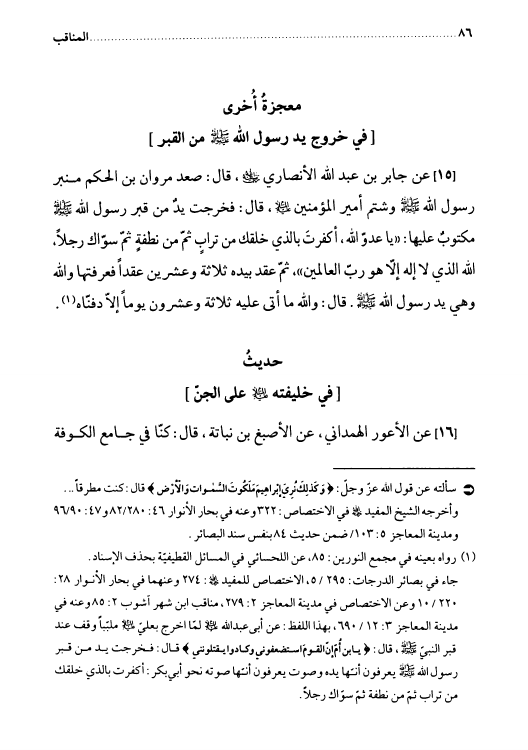 ٨٦ ........ المناقب
معجزةُ أُخرى
[ في خروج يد رسول الله ﷺ من القبر ]
[١٥] عن جابر بن عبد الله الأنصاري ، قال: صعد مروان بن الحكم منبر
رسول الله ﷺ وشتم أمير المؤمنين ، قال: فخرجت يدٌ من قبر رسول الله ﷺ
مكتوبٌ عليها: «يا عدوّ الله، أكفرتَ بالذي خلقك من ترابٍ ثمّ من نطفةٍ ثمّ سوّاك رجلاً،
الله الذي لا إله إلّا هو ربّ العالمين»، ثمّ عقد بيده ثلاثة وعشرين عقداً فعرفتها والله
وهي يد رسول الله ﷺ. قال: والله ما أتى عليه ثلاثة وعشرون يوماً إلاّ دفنّاه(١).
حديثُ
[ في خليفته على الجنّ ]
[١٦] عن الأعور الهمداني، عن الأصبغ بن نباتة، قال: كنّا في جامع الكوفة
سألته عن قول الله عزّ وجلّ: ﴿وَكَذلِكَ نُرِيَ إِبْرَاهِيمَ مَلَكُوتَ السَّمٰوَاتِ وَالْأَرْضِ﴾ قال: كنت مطرقاً...
وأخرجه الشيخ المفيد في الاختصاص: ٣٢٢ وعنه في بحار الأنوار ٤٦: ٨٢/٢٨٠ و٤٧: ٩٦/٩٠
ومدينة المعاجز ٥: ١٠٣/ ضمن حديث ٨٤ بنفس سند البصائر.
(١) رواه بعينه في مجمع النورين: ٨٥، عن اللحسائي في المسائل القطيفيّة بحذف الإسناد.
جاء في بصائر الدرجات: ٢٩٥ / ٥، الاختصاص للمفيد: ٢٧٤ وعنهما في بحار الأنوار ٢٨:
٢٢٠ / ١٠ وعن الاختصاص في مدينة المعاجز ٢: ٢٧٩، مناقب ابن شهر آشوب ٢: ٨٥ وعنه في
مدينة المعاجز ٣: ١٢ / ٦٩٠، بهذا اللفظ: عن أبي عبدالله لمّا اخرج بعليّ ملبّباً وقف عند
قبر النبيّ ﷺ، قال: ﴿يا بن أُمّ إنّ القوم استضعفوني وكادوا يقتلونني﴾ قال: فخرجت يد من قبر
رسول الله ﷺ يعرفون أنّها يده وصوت يعرفون أنّها صوته نحو أبي بكر: أكفرت بالذي خلقك
من تراب ثمّ من نطفة ثمّ سوّاك رجلاً.